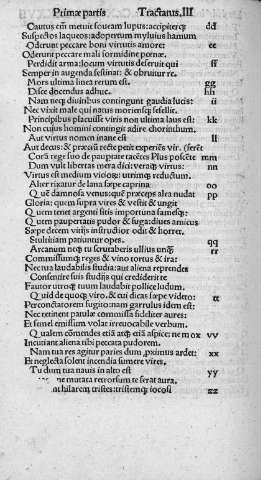 Primæ partis Tractatus. III
Cautus eñi metuit foueam lupus: accipiterq; dd
Suspectos laqueos: adopertum myluius hamum
Oderunt peccare boni virtutis amore: ee
Oderunt peccare mali formidine pœnæ.
Perdidit arma: locum virtutis deseruit qui ff
Semper in augenda festinat: & obruitur re.
Mors vltima linea rerum est. gg
Disce docendus adhuc. hh
Nam neq; diuitibus contingunt gaudia solis: ii
Nec vixit male qui natus moriensq; fefellit.
Principibus placuisse viris non vltima laus est: kk
Non cuius homini contingit adire chorinthum.
Aut virtus nomen inane est ll
Aut decus: & præciũ recte petit experiẽs vir. (feret
Corã rege suo de paupertate tacẽtes Plus poscẽte mm
Dum vult libertas mera dici: veraq; virtus: nn
Virtus est medium vicioꝝ: utrinq; reductum.
Alter rixatur de lana sæpe caprina oo
Quẽ damnosa venus: quẽ præceps alea nudat pp
Gloria: quem supra vires & vestit & vngit
Quem tenet argenti sitis importuna famesq;:
Quem paupertatis pudor & fuga: diues amicus
Sæpe decem vitiis instructior odit & horret.
Stultitiam patiuntur opes. qq
Arcanum neq; tu scrutaberis vllius unq̃ rr
Commissumq; teges & vino tortus & ira:
Nec tua laudabis studia: aut aliena reprendes
Consentire suis studiis qui crediderit te
Fautor utroq; tuum laudabit pollice ludum.
Quid de quoq; viro. & cui dicas sæpe videto: tt
Percontatorem fugito: nam garrulus idem est:
Nec retinent patulæ commissa fideliter aures:
Et semel emissum volat irreuocabile verbum.
Qualem cõmendes etiã atq; etiã aspice: ne mox vv
Incutiant aliena tibi peccata pudorem.
Nam tua res agitur paries dum ꝓximus ardet: xx
Et neglecta solent incendia sumere vires.
Tu dum tua nauis in alto est yy
ne mutata retrorsum te ferat aura.
hilarem tristes: tristemq; iocosi zz